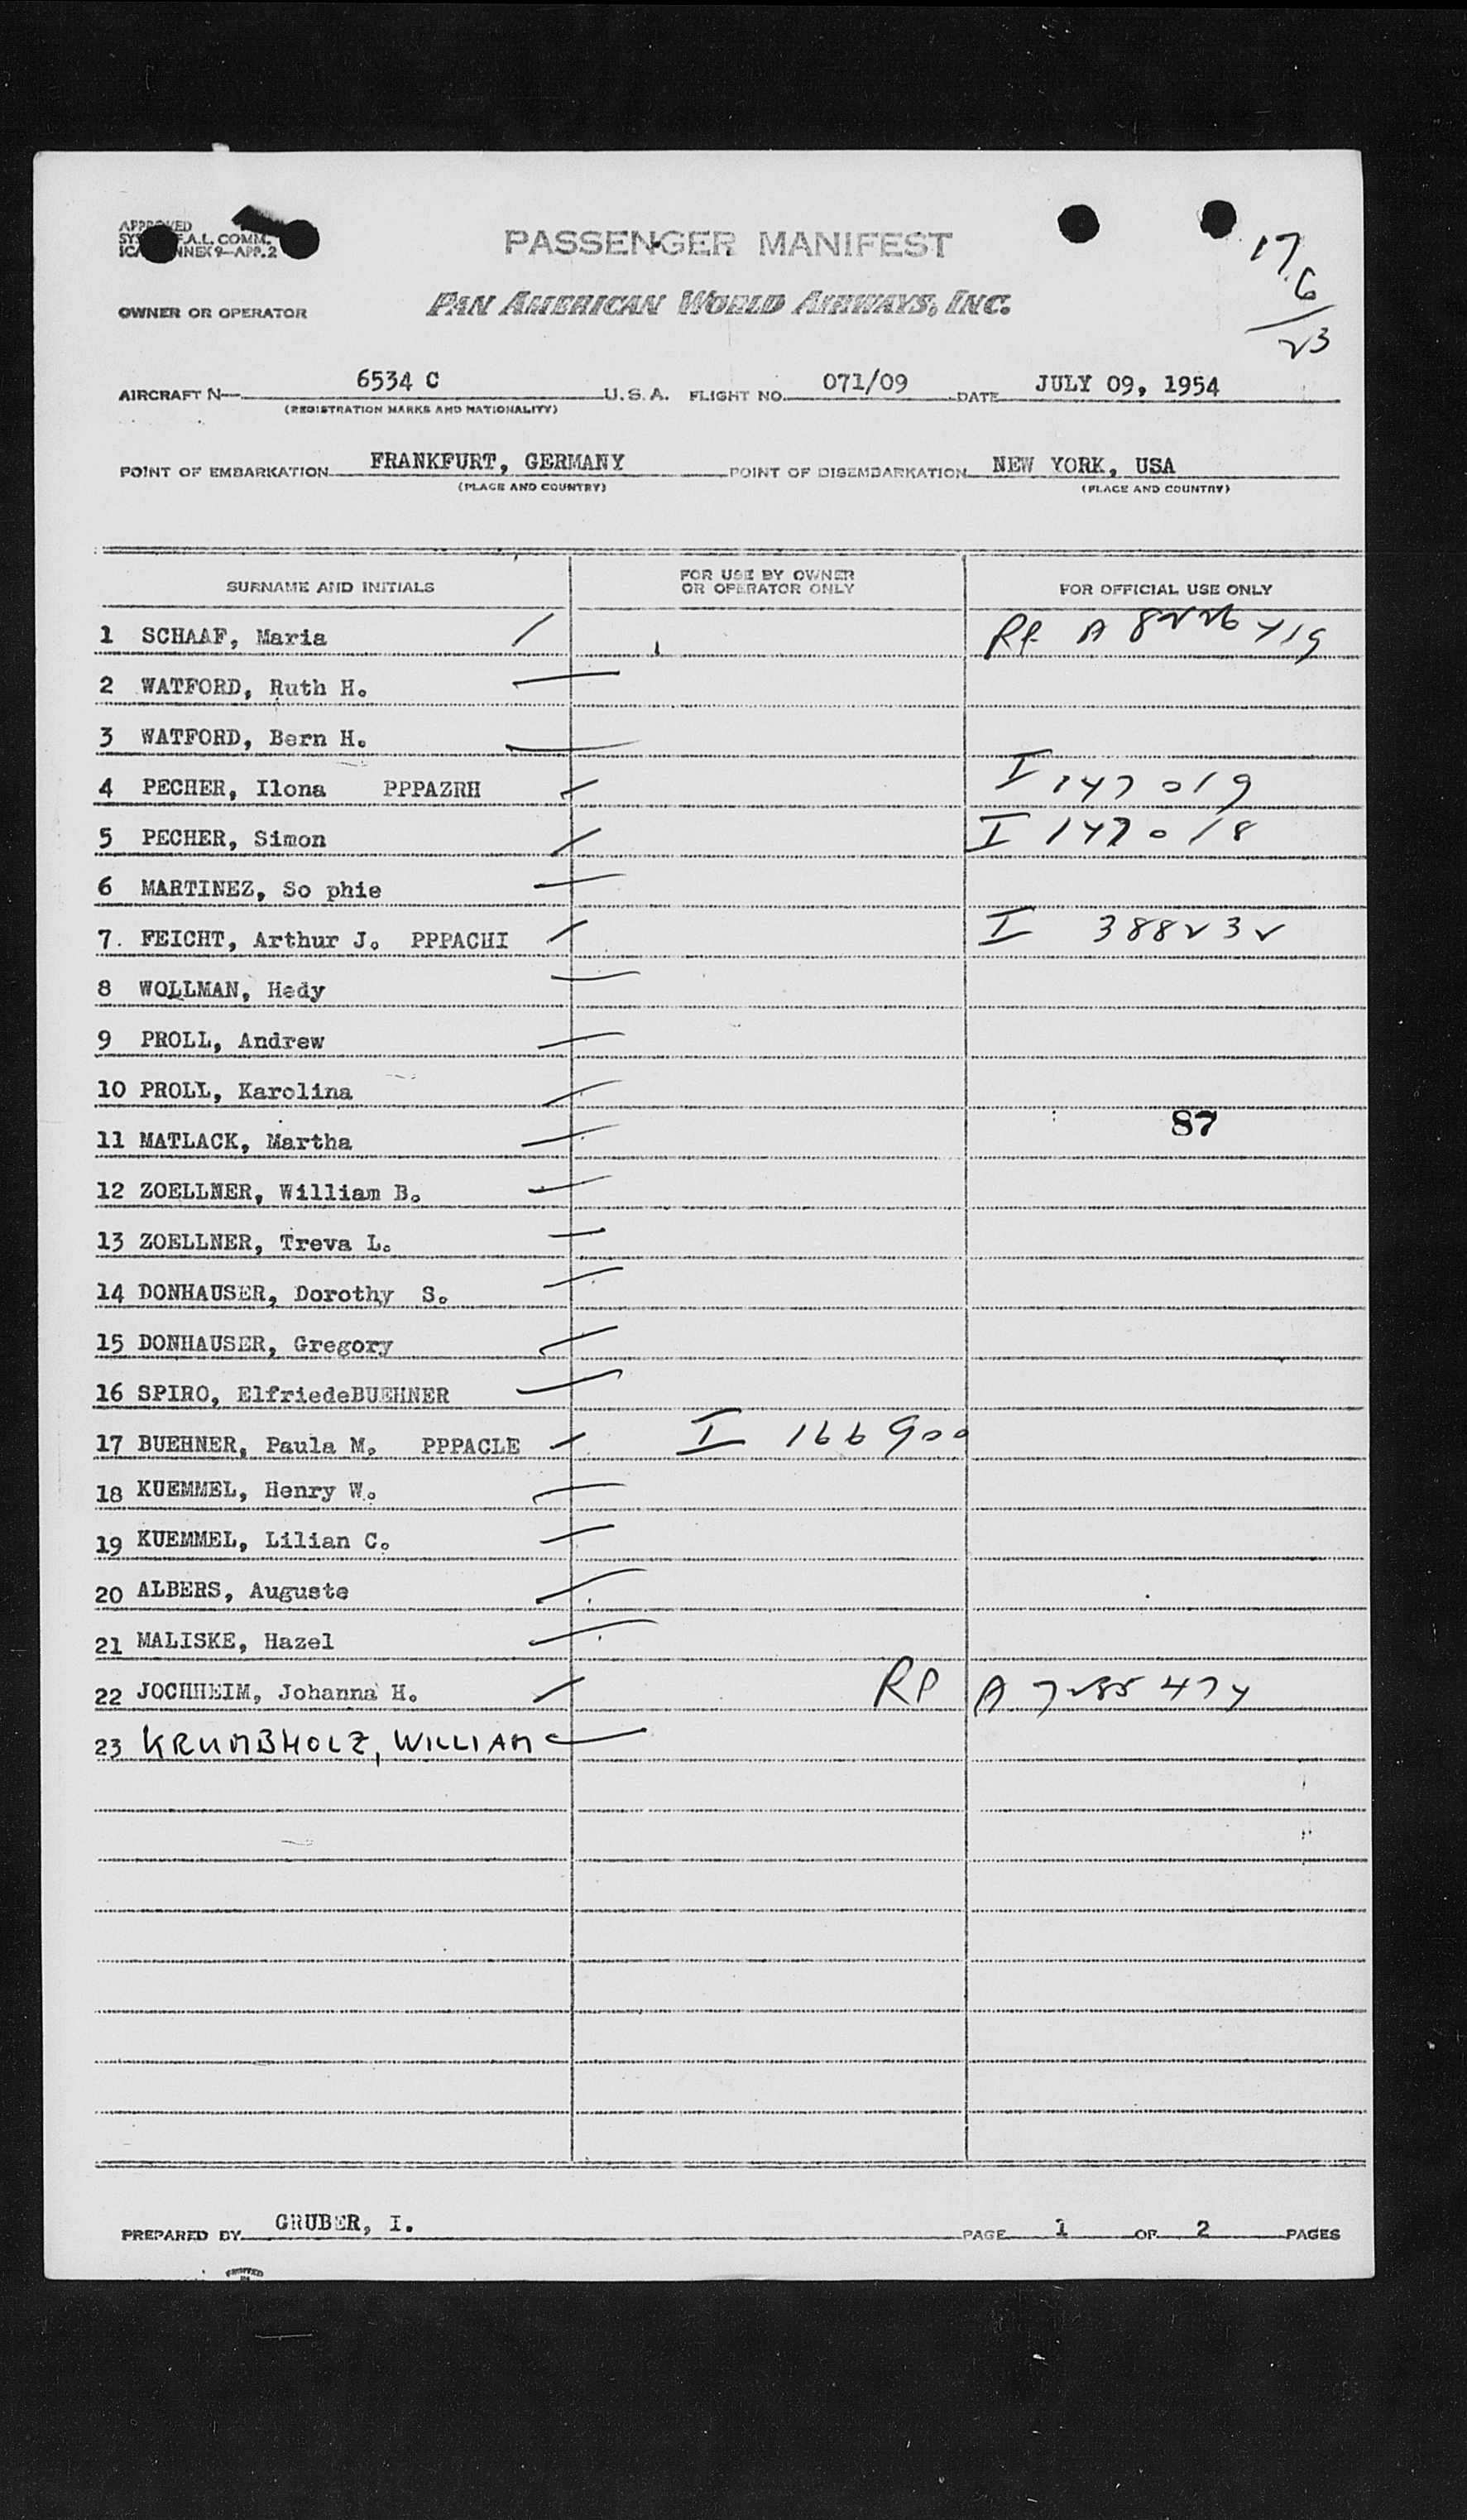 APPROVED
F.A.L. COMM.
ANNEX 9—APP. 2
PASSENGER MANIFEST
17
6
23
OWNER OR OPERATOR PAN AMERICAN WORLD AIRWAYS, INC.
AIRCRAFT N— 6534 C U.S.A. FLIGHT NO. 071/09 DATE JULY 09, 1954
(REGISTRATION MARKS AND NATIONALITY)
POINT OF EMBARKATION FRANKFURT, GERMANY POINT OF DISEMBARKATION NEW YORK, USA
(PLACE AND COUNTRY) (PLACE AND COUNTRY)
SURNAME AND INITIALS FOR USE BY OWNER OR OPERATOR ONLY FOR OFFICIAL USE ONLY
1 SCHAAF, Maria RP A 8226719
2 WATFORD, Ruth H.
3 WATFORD, Bern H.
4 PECHER, Ilona PPPAZRH I 147019
5 PECHER, Simon I 147018
6 MARTINEZ, So phie
7. FEICHT, Arthur J. PPPACHI I 388232
8 WOLLMAN, Hedy
9 PROLL, Andrew
10 PROLL, Karolina
87
11 MATLACK, Martha
12 ZOELLNER, William B.
13 ZOELLNER, Treva L.
14 DONHAUSER, Dorothy S.
15 DONHAUSER, Gregory
16 SPIRO, ElfriedeBUEHNER
17 BUEHNER, Paula M. PPPACLE I 166900
18 KUEMMEL, Henry W.
19 KUEMMEL, Lilian C.
20 ALBERS, Auguste
21 MALISKE, Hazel
22 JOCHHEIM, Johanna H. RP A 7285474
23 KRUMBHOLZ, WILLIAM
PREPARED BY GRUBER, I. PAGE 1 OF 2 PAGES